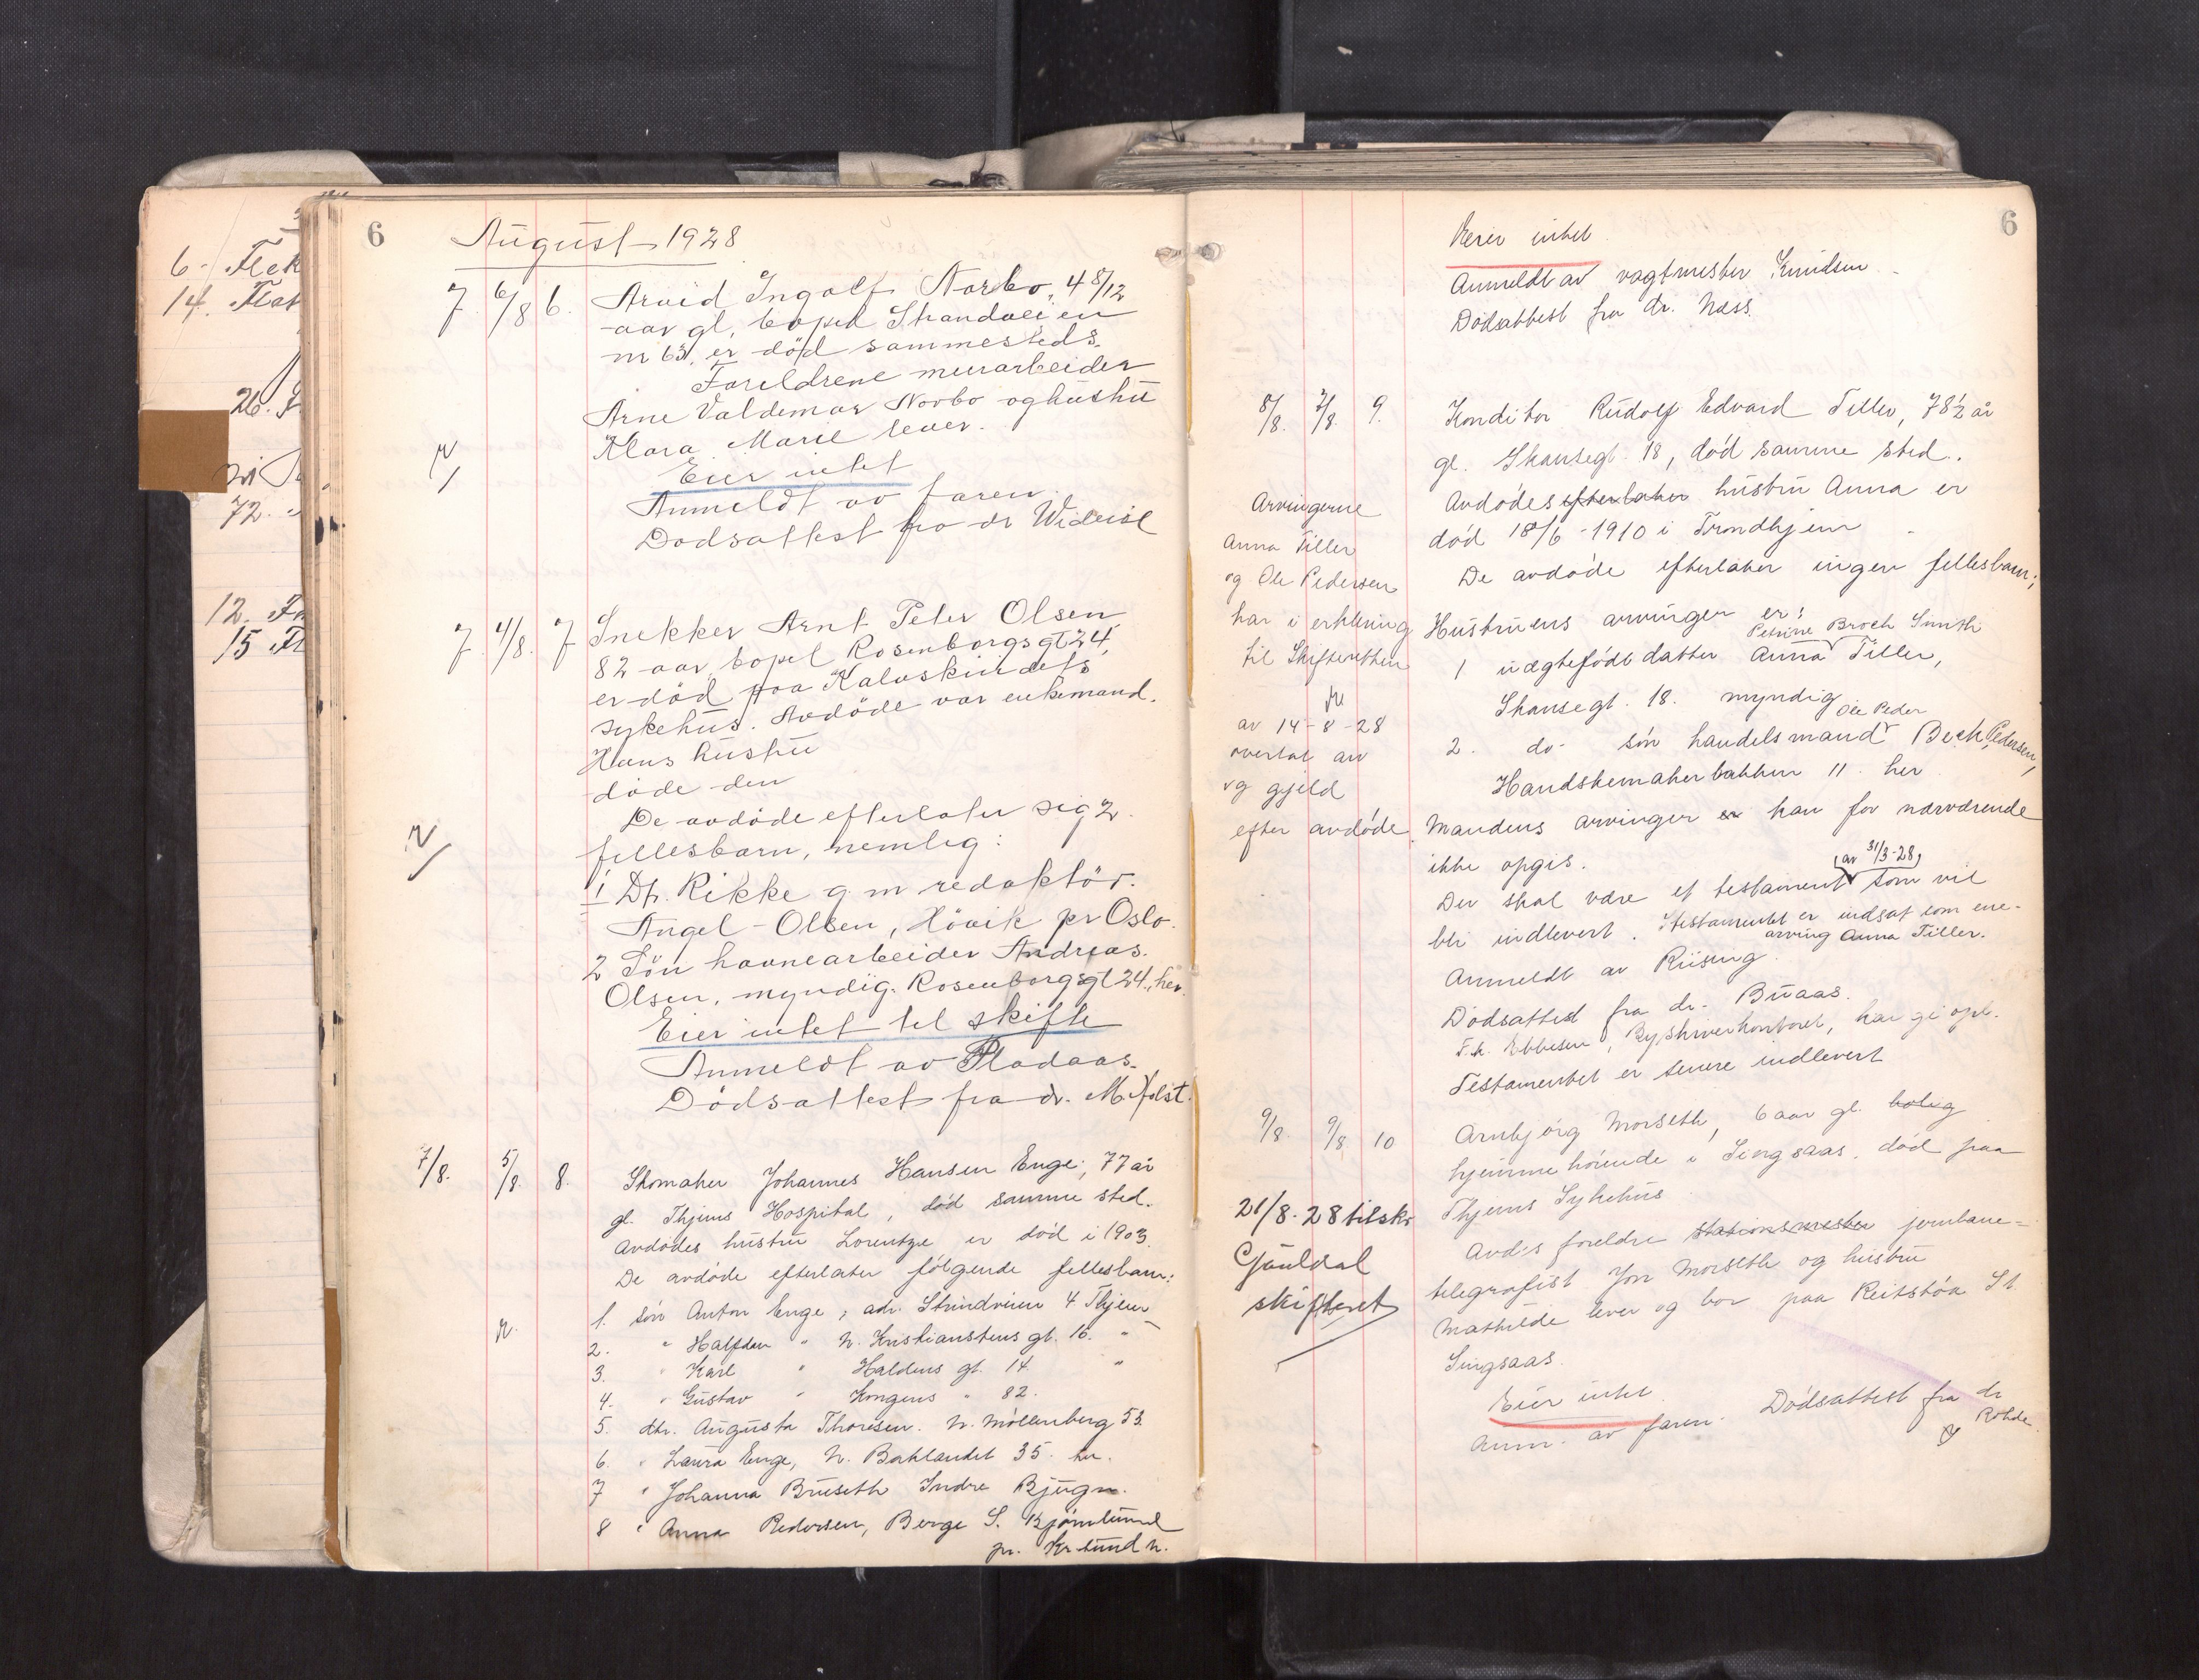 6- Flek
14. Flat
26. J
72.
12. Fr
15 Fr
6
August 1928
7 6/8 6. Arvid Ingolf Norbo, 4 8/12
aar gl, bopel Strandveien
nr 63, er död sammesteds.
Foreldrene murarbeider
Arne Valdemar Norbo og hustru
Klara Marie lever.
Eier intet
Anmeldt av faren.
Dodsattest fra dr Widerøe
7 4/8. 7 Snekker Arnt Peter Olsen
82 aar, bopel Rosenborgsgt 24,
er död paa Kalvskindets
sykehus. Avdöde var enkemand.
Hans hustru
döde den
De avdöde efterlater sig 2
fellesbarn, nemlig:
1 Dt. Rikke g. m redaktör.
Angel-Olsen, Hövik pr Oslo.
2 Sön havnearbeider Andreas.
Olsen, myndig. Rosenborgsgt 24, her.
Eier intet til skifte
Anmeldt av Pladaas.
Dödsattest fra dr. M. Holst.
7/8. 5/8. 8. Skomaker Johannes Hansen Enge, 77 år
gl. Thjems Hospital, død samme sted.
Avdødes hustru Lorentze er død i 1903.
De avdøde efterlater følgende fellesbarn:
1. søn Anton Enge, adr. Strindveien 4 Thjem
2. " Halfdan " N. Kristianstens gt. 16. "
3. " Karl " Haldens gt. 14. "
4. " Gustav " Kongens " 82.
5. dtr. Augusta Thoresen. N. Møllenberg 53.
6. " Laura Enge, N. Baklandet 35. her.
7 " Johanna Bruseth Indre Bjugn.
8 " Anna Pedersen, Berge S. Bjørnlund
pr. Kr.sund N.
6
Eier intet
Anmeldt av vagtmester Knudsen
Dödsattest fra dr. Næss.
8/8. 7/8. 9. Konditor Rudolf Edvard Tiller, 78 1/2 år
gl. Skansegt. 18, død samme sted.
Avdødes efterlater hustru Anna er
død 18/6 - 1910 i Trondhjem
De avdøde efterlater ingen fellesbarn;
Hustruens arvinger er:
Petrine Broch Smith
1 uægtefødt datter Anna Tiller,
Skansegt. 18. myndig
Ole Peder
2. do- søn handelsmand Bech Pedersen,
Handskemakerbakken 11. her
Mandens arvinger er kan for nærværende
ikke opgis.
av 31/3-28,
Der skal være et testament som vil
bli indlevert. I testamentet er indsat som ene-
arving Anna Tiller.
Anmeldt av Riising.
Dødsattest fra dr. Buaas.
F.k. Ebbesen, Byskriverkontoret, har gi opl.
Testamentet er senere indlevert
Arvingerne
Anna Tiller
og Ole Pedersen
har i erklæring
til Skifteretten
av 14-8-28
overtat arv
og gjeld
efter avdøde.
9/8. 9/8 10 Arnbjörg Morseth, 6 aar gl. bolig
hjemmehörende i Singsaas. död paa
Thjems Sykehus
Avd's foreldre stationsmester jernbane-
telegrafist Jon Morseth og hustru
Mathilde lever og bor paa Reitstøa St
Singsaas.
Eier intet.
Anm. av faren. Dödsattest fra dr
Rohde.
21/8-28 tilskr
Gauldal
skifteret